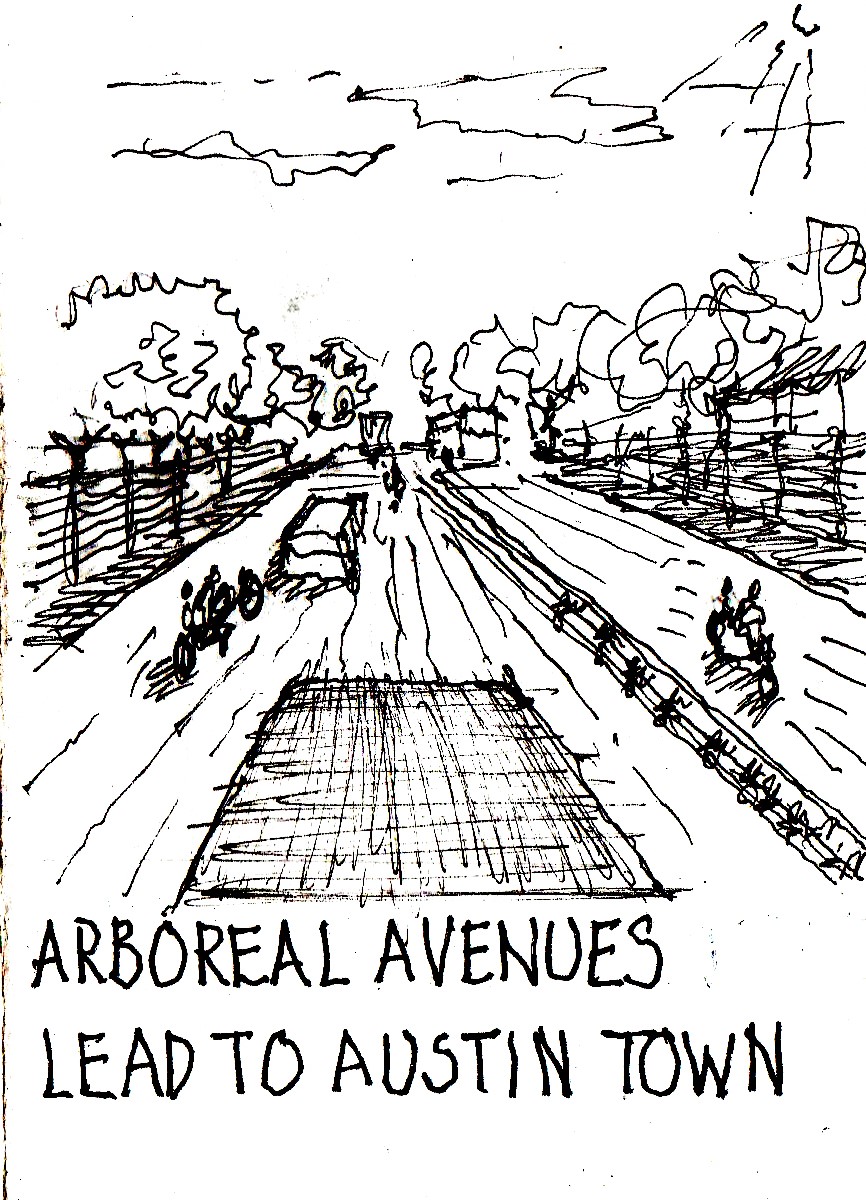 ARBOREAL AVENUES
LEAD TO AUSTIN TOWN